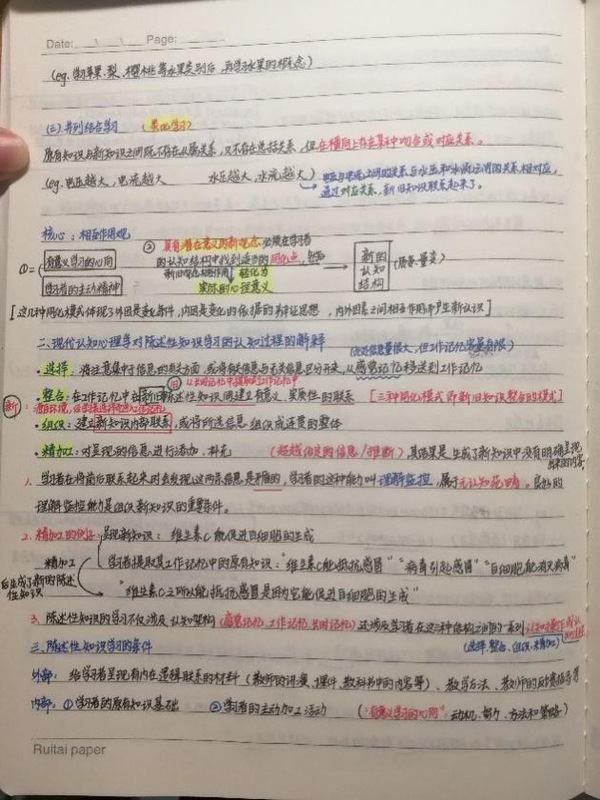 Date: \ \ Page:
(eg. 学习苹果、梨、樱桃等水果类别后，再学习水果的概念)
(三) 并列结合学习 (类化学习)
原有知识与新知识之间既不存在从属关系，又不存在总括关系，但在横向上存在某种吻合或对应关系。
(eg. 电压越大，电流越大 水压越大，水流越大) → 电压与电流之间的关系与水压和水流之间的关系相对应，
通过对应关系，新旧知识联系起来了。
核心：相互作用观
①=( 有意义学习的心向
学习者的主动精神
② 具有潜在意义的新观念必须在学习者
的认知结构中找到适当的同化点，
新旧观念相互作用 转化为
实际的心理意义
新的认知结构 (质变、量变)
[这几种同化模式体现了外因是变化条件，内因是变化的依据的辩证思想，内外因素之间相互作用并产生新认识]
二、现代认知心理学对陈述性知识学习的认知过程的解释
(信息量很大，但工作记忆容量有限)
·选择：将注意集中于信息的有关方面，或将有关信息与无关信息区分开来，从感觉记忆移送到工作记忆
旧 从长时记忆中提取到工作记忆中
·整合：在工作记忆中在新旧陈述性知识间建立有意义、实质性的联系 [三种同化模式即新旧知识整合的模式]
新：
·组织：建立新知识内部联系，或将所选信息组织成连贯的整体
·精加工：对呈现的信息进行添加、补充 (超越给定的信息/推断) 其结果是生成了新知识中没有明确呈现
出来的内容
1. 学习者在将前后联系起来时会发现这两条信息是矛盾的，学习者的这种能力叫理解监控，属于元认知范畴。良好的
理解监控能力是组织新知识的重要条件。
2. 精加工的例子：呈现新知识：维生素C能促进白细胞的生成
精加工 学习者提取其工作记忆中的原有知识："维生素C能抵抗感冒" "病毒引起感冒" "白细胞能消灭病毒"
后生成了新的陈述性知识 "维生素C之所以能抵抗感冒是因为它能促进白细胞的生成"
3. 陈述性知识的学习不仅涉及认知架构 (感觉记忆、工作记忆、长时记忆) 还涉及学习者在这三种结构之间的一系列认知操作或认知过程
(选择、整合、组织、精加工)
三、陈述性知识学习的条件
外部：给学习者呈现有内在逻辑联系的材料 (教师的讲演、课件、教科书中的内容等)、教学方法、教师的
内部：①学习者的原有知识基础 ②学习者的主动加工活动 ("有意义学习的心向"：动机、努力、方法和策略)
Ruitai paper